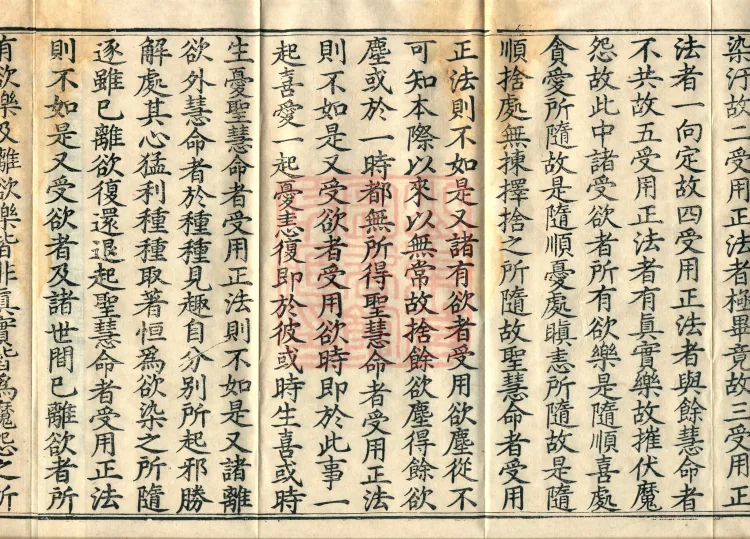 染汙故二受用正法者極畢竟故三受用正
法者一向定故四受用正法者與餘慧命者
不共故五受用正法者有眞實樂故摧伏魔
怨故此中諸受欲者所有欲樂是隨順喜處
貪愛所隨故是隨順憂處瞋恚所隨故是隨
順捨處無揀擇捨之所隨故聖慧命者受用
正法則不如是又諸有欲者受用欲塵從不
可知本際以來以無常故捨餘欲塵得餘欲
塵或於一時都無所得聖慧命者受用正法
則不如是又受欲者受用欲時即於此事一
起喜愛一起憂恚復即於彼或時生喜或時
生憂聖慧命者受用正法則不如是又諸離
欲外慧命者於種種見趣自分別所起邪勝
解處其心猛利種種取著恒為欲染之所隨
逐雖已離欲復還退起聖慧命者受用正法
則不如是又受欲者及諸世間已離欲者所
有欲樂及離欲樂皆非眞實皆為魔怨之所